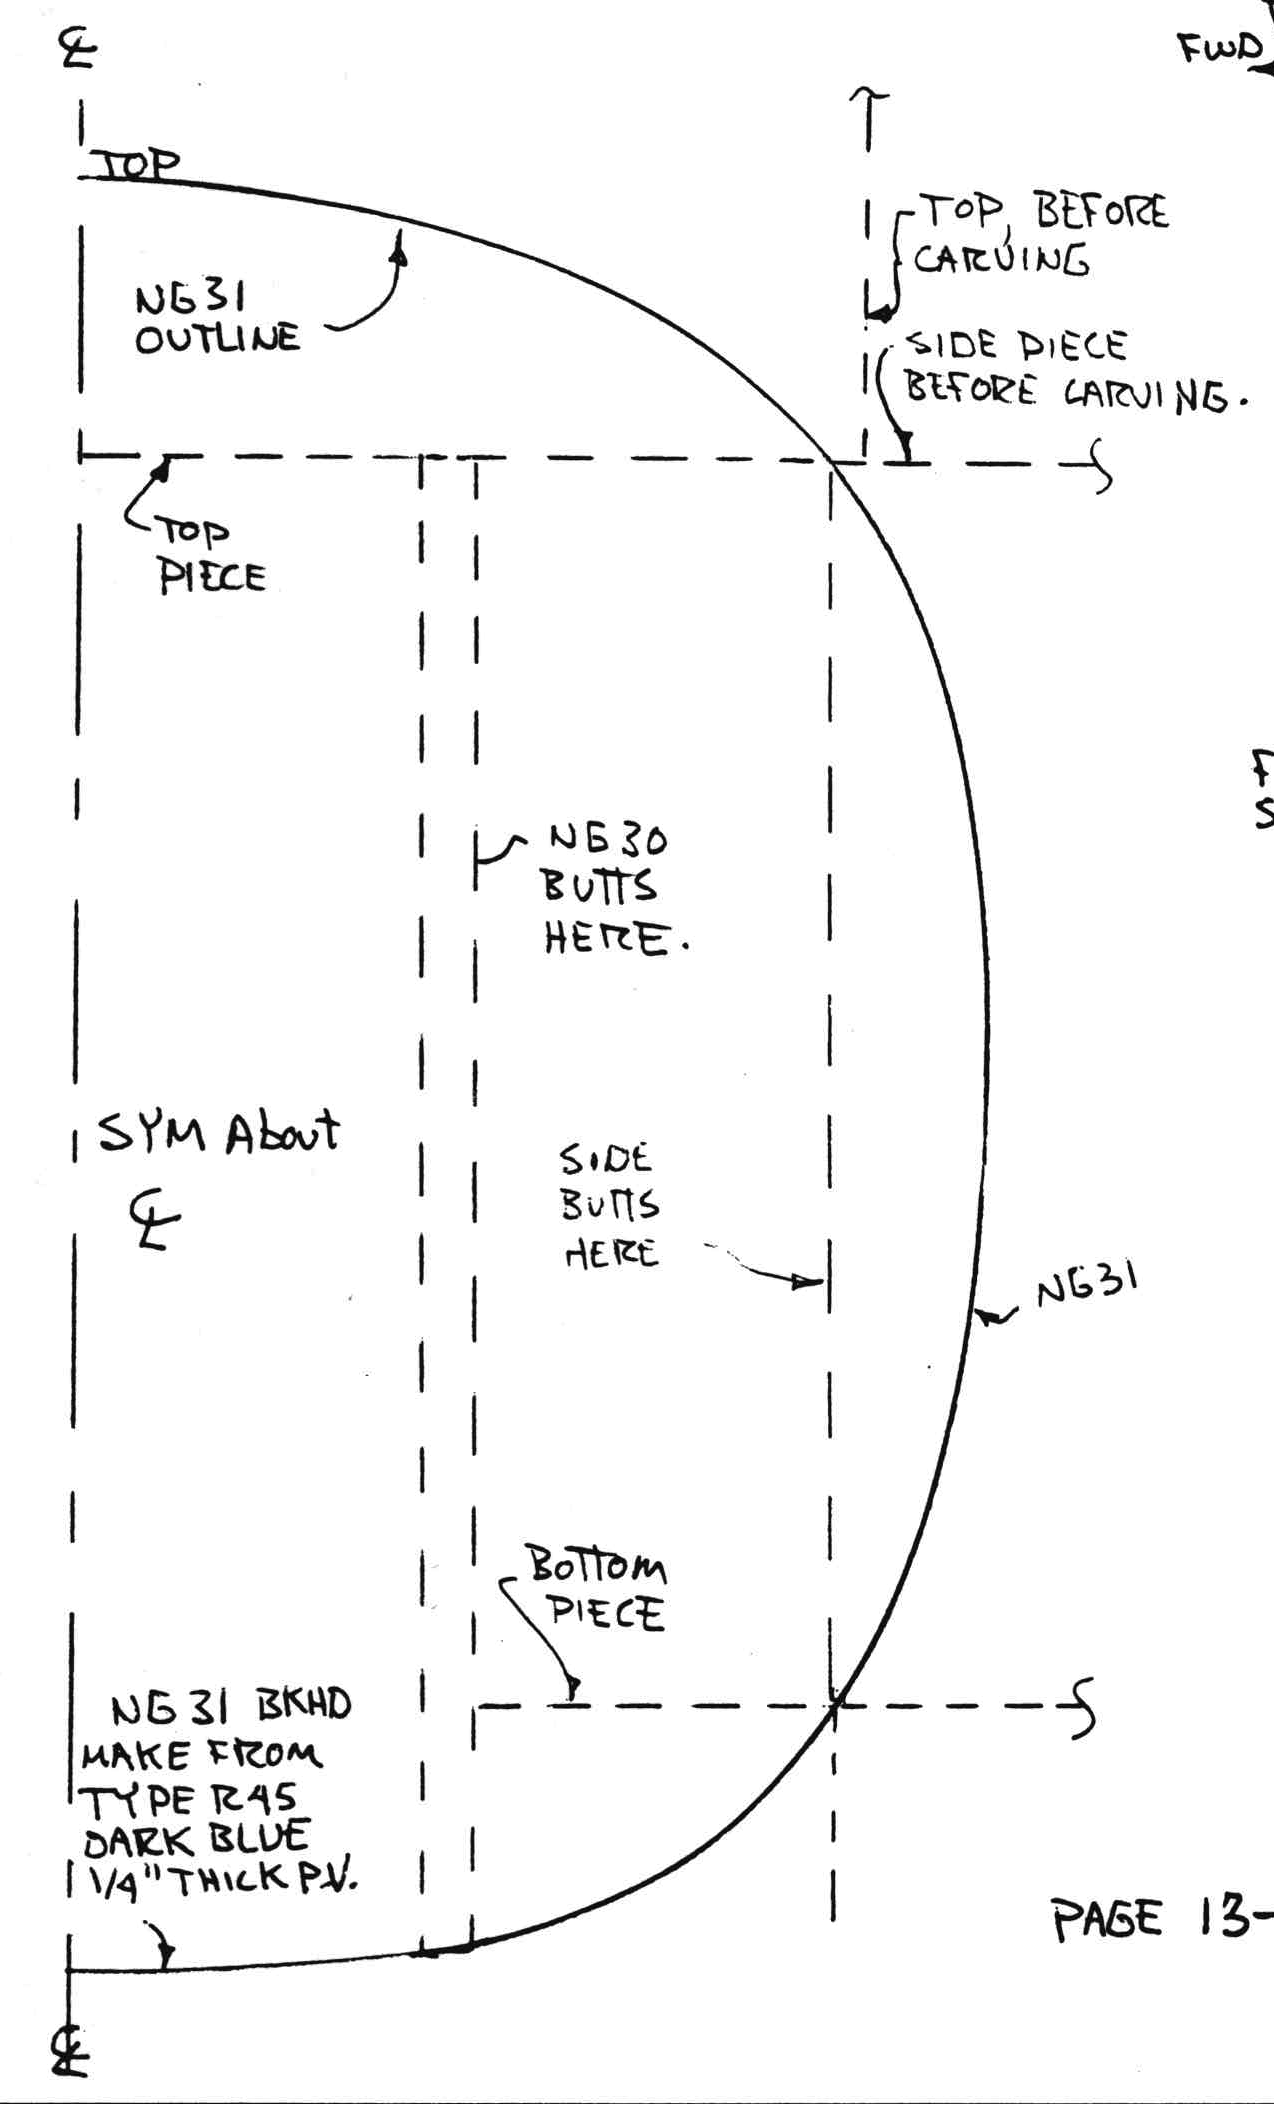 ℄
FWD
TOP
TOP, BEFORE
CARVING
NG31
OUTLINE
SIDE PIECE
BEFORE CARVING.
TOP
PIECE
F
S
NG30
BUTTS
HERE.
SYM About
℄
SIDE
BUTTS
HERE
NG31
Bottom
PIECE
NG31 BKHD
MAKE FROM
TYPE R45
DARK BLUE
1/4" THICK P.V.
PAGE 13-
℄